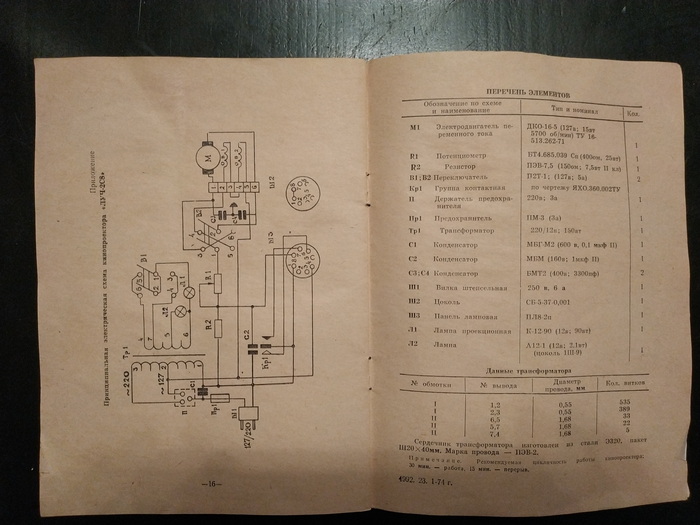 Приложение
Принципиальная электрическая схема кинопроектора «ЛУЧ-2С8»
~220
~127
Тр1
В1
Л1
Л2
В2
М
Ш2
Ш3
R1
R2
С1
С2
Кр1
Пр1
П
Ш1
127/220
—16—
ПЕРЕЧЕНЬ ЭЛЕМЕНТОВ
Обозначение по схеме и наименование Тип и номинал Кол.
М1 Электродвигатель переменного тока ДКО-16-5 (127в; 15вт 5700 об/мин) ТУ 16-513.262-71 1
R1 Потенциометр ПТ4.685.039 Сп (400ом, 25вт) 1
R2 Резистор ПЭВ-7,5 (150ом; 7,5вт II кл) 1
В1; В2 Переключатель П2Т-1; (127в; 5а) 2
Кр1 Группа контактная по чертежу ЯХО.360.002ТУ 1
П Держатель предохранителя 220в; 3а 1
Пр1 Предохранитель ПМ-3 (3а) 1
Тр1 Трансформатор 220/12в; 150вт 1
С1 Конденсатор МБГ-М2 (600 в, 0,1 мкф II) 1
С2 Конденсатор МБМ (160в; 1мкф II) 1
С3; С4 Конденсатор БМТ2 (400в; 3300пф) 2
Ш1 Вилка штепсельная 250 в, 6 а 1
Ш2 Цоколь СБ-5-37-0,001 1
Ш3 Панель ламповая ПЛ8-2п 1
Л1 Лампа проекционная К-12-90 (12в; 90вт) 1
Л2 Лампа А12-1 (12в; 2,1вт) (цоколь 1Ш9) 1
Данные трансформатора
№ обмотки № вывода Диаметр провода, мм Кол. витков
I 1,2 0,55 535
I 2,3 0,55 389
II 6,5 1,68 33
II 5,7 1,68 22
II 7,4 1,68 5
Сердечник трансформатора изготовлен из стали Э320, пакет
Ш20×40мм. Марка провода — ПЭВ-2.
Примечание. Рекомендуемая цикличность работы кинопроектора:
30 мин. — работа, 15 мин. — перерыв.
4502. 23. I-74 г.